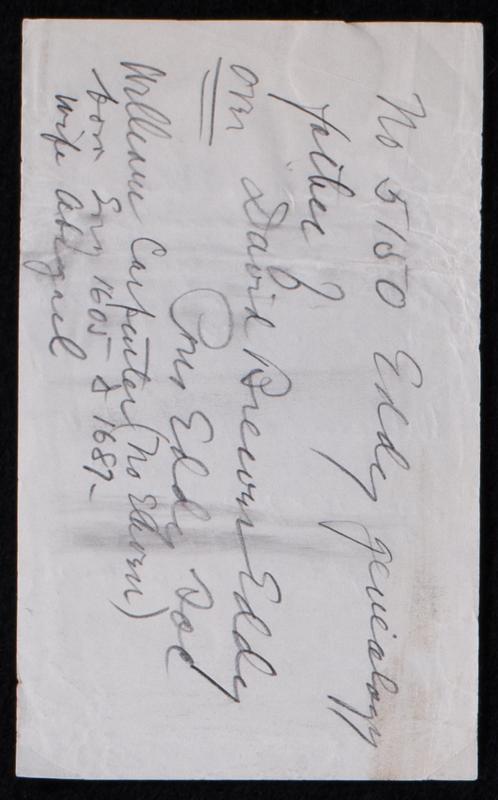 No 5150 Eddy geneology
father
on David Brewer Eddy
Pres Eddy Soc
William Carpenter (No
born Eng 1605 d 1687-
wife Abigael